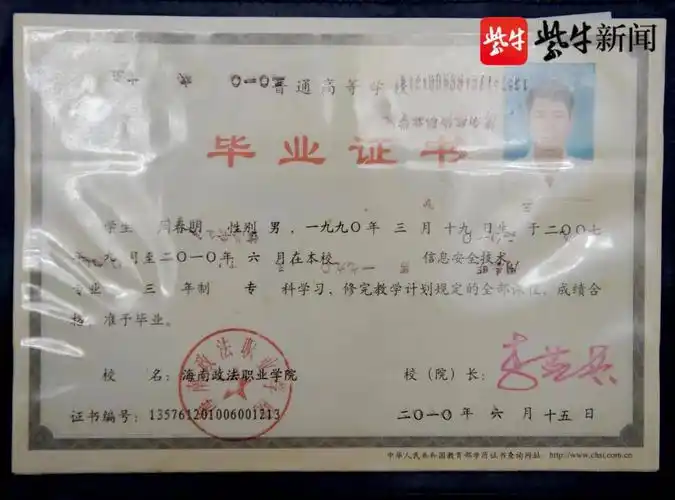 紫牛 紫牛新闻
普通高等学
毕业证书
学生 周春明 性别 男，一九九〇年 三 月 十九 日生，于二〇〇七
年 九 月至二〇一〇年 六 月在本校 信息安全技术
专业 三 年制 专 科学习，修完教学计划规定的全部课程，成绩合
格，准予毕业。
校 名：海南政法职业学院
校（院）长：
证书编号：135761201006001213
二〇一〇年 六 月 十五 日
中华人民共和国教育部学历证书查询网址 http://www.chsi.com.cn